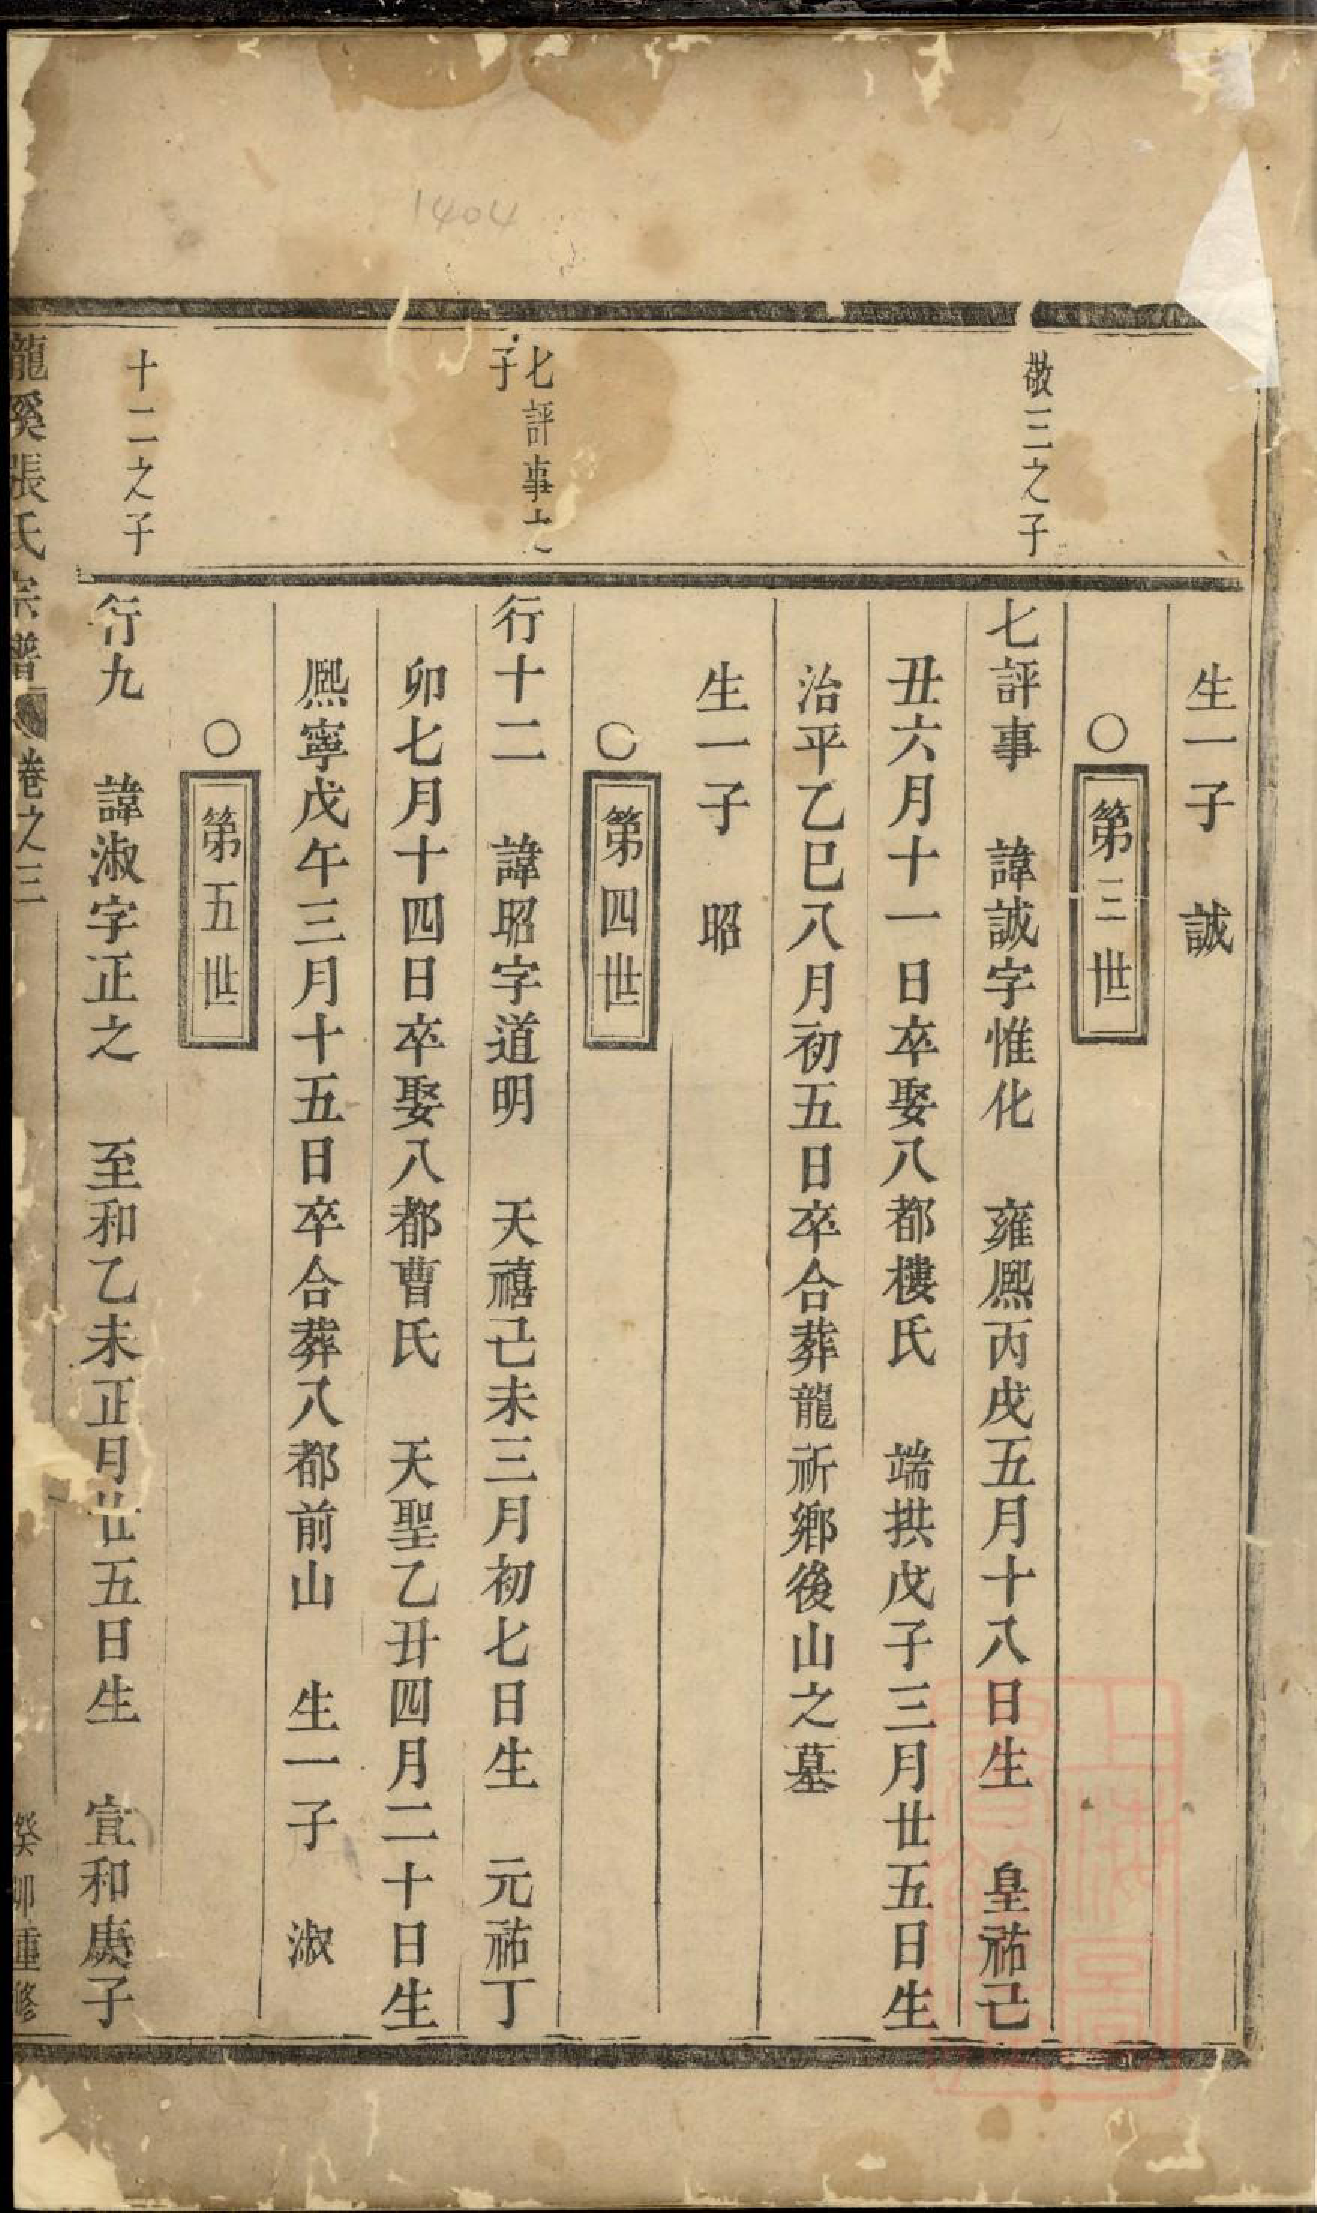 1404
生一子 誠
○第三世
敬三之子
七評事 諱誠字惟化 雍熙丙戌五月十八日生 皇祐己
丑六月十一日卒娶八都樓氏 端拱戊子三月廿五日生
治平乙巳八月初五日卒合葬龍祈鄉後山之墓
生一子 昭
○第四世
七評事之
子
行十二 諱昭字道明 天禧己未三月初七日生 元祐丁
卯七月十四日卒娶八都曹氏 天聖乙丑四月二十日生
熙寧戊午三月十五日卒合葬八都前山 生一子 淑
○第五世
十二之子
行九 諱淑字正之 至和乙未正月廿五日生 宣和庚子
龍溪張氏宗譜 卷之三 癸卯重修